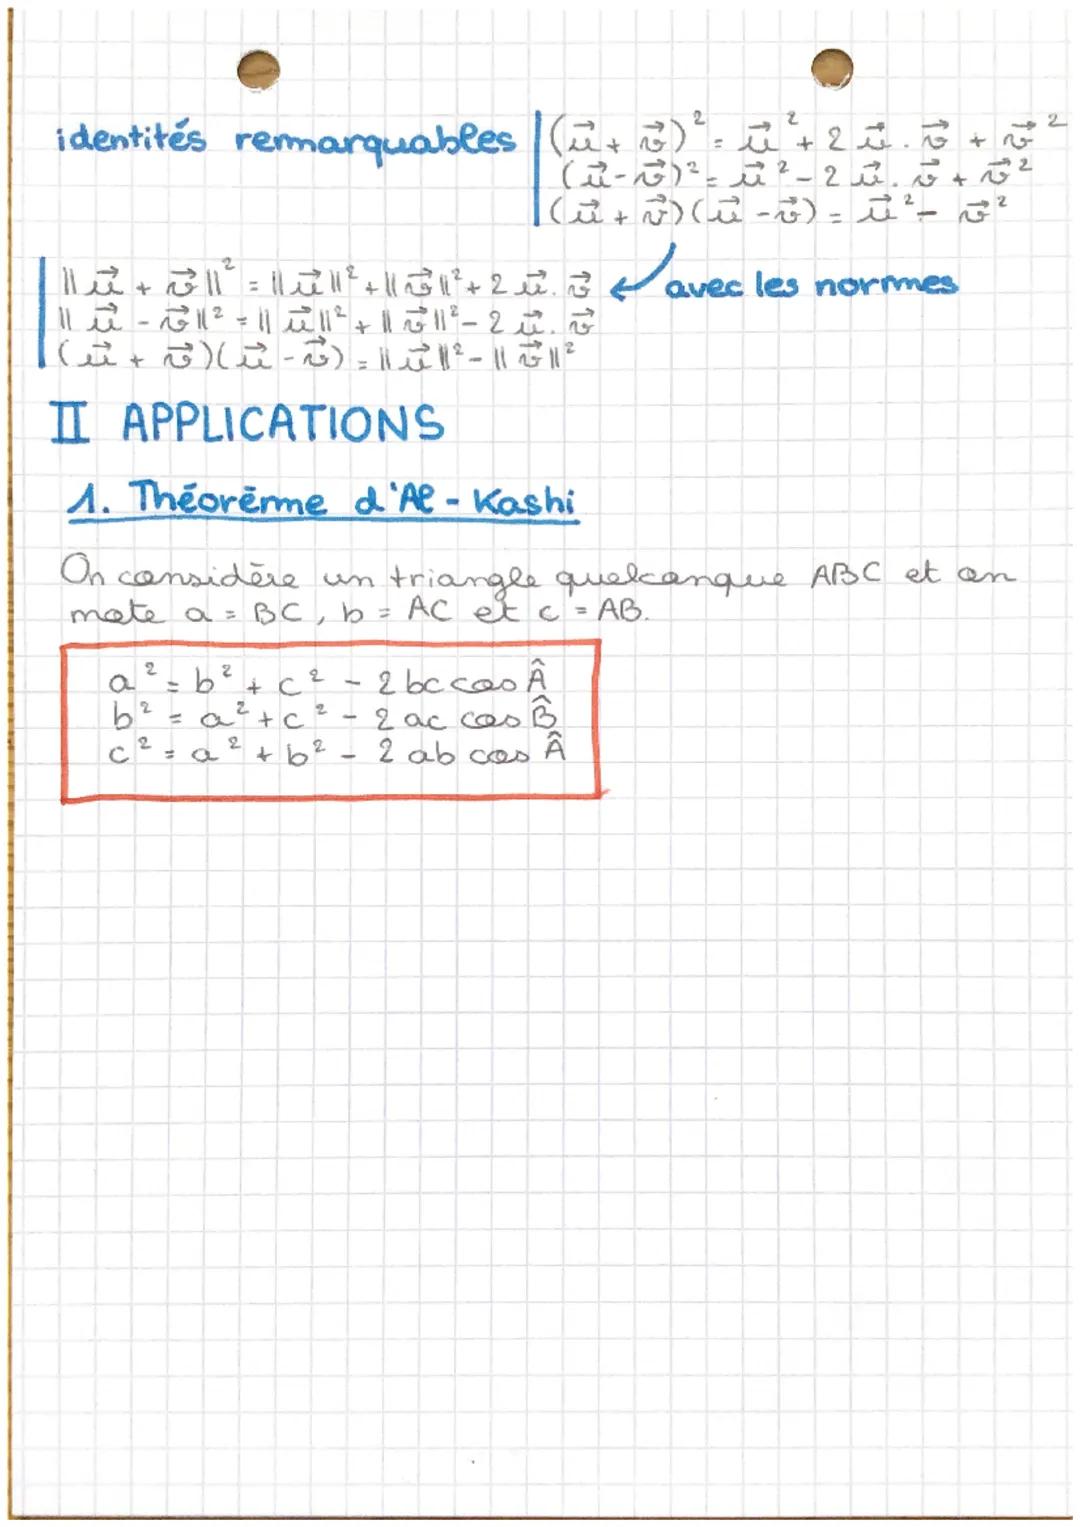 identités remarquables
(u⃗ + v⃗)² = u⃗² + 2 u⃗ . v⃗ + v⃗²
(u⃗ - v⃗)² = u⃗² - 2 u⃗ . v⃗ + v⃗²
(u⃗ + v⃗)(u⃗ - v⃗) = u⃗² - v⃗²
||u⃗ + v⃗||² = ||u⃗||² + ||v⃗||² + 2 u⃗ . v⃗ ← avec les normes
||u⃗ - v⃗||² = ||u⃗||² + ||v⃗||² - 2 u⃗ . v⃗
(u⃗ + v⃗)(u⃗ - v⃗) = ||u⃗||² - ||v⃗||²
II APPLICATIONS
1. Théorème d'Al-Kashi
On considère un triangle quelconque ABC et on
note a = BC, b = AC et c = AB.
a² = b² + c² - 2 bc cos Â
b² = a² + c² - 2 ac cos B̂
c² = a² + b² - 2 ab cos Â